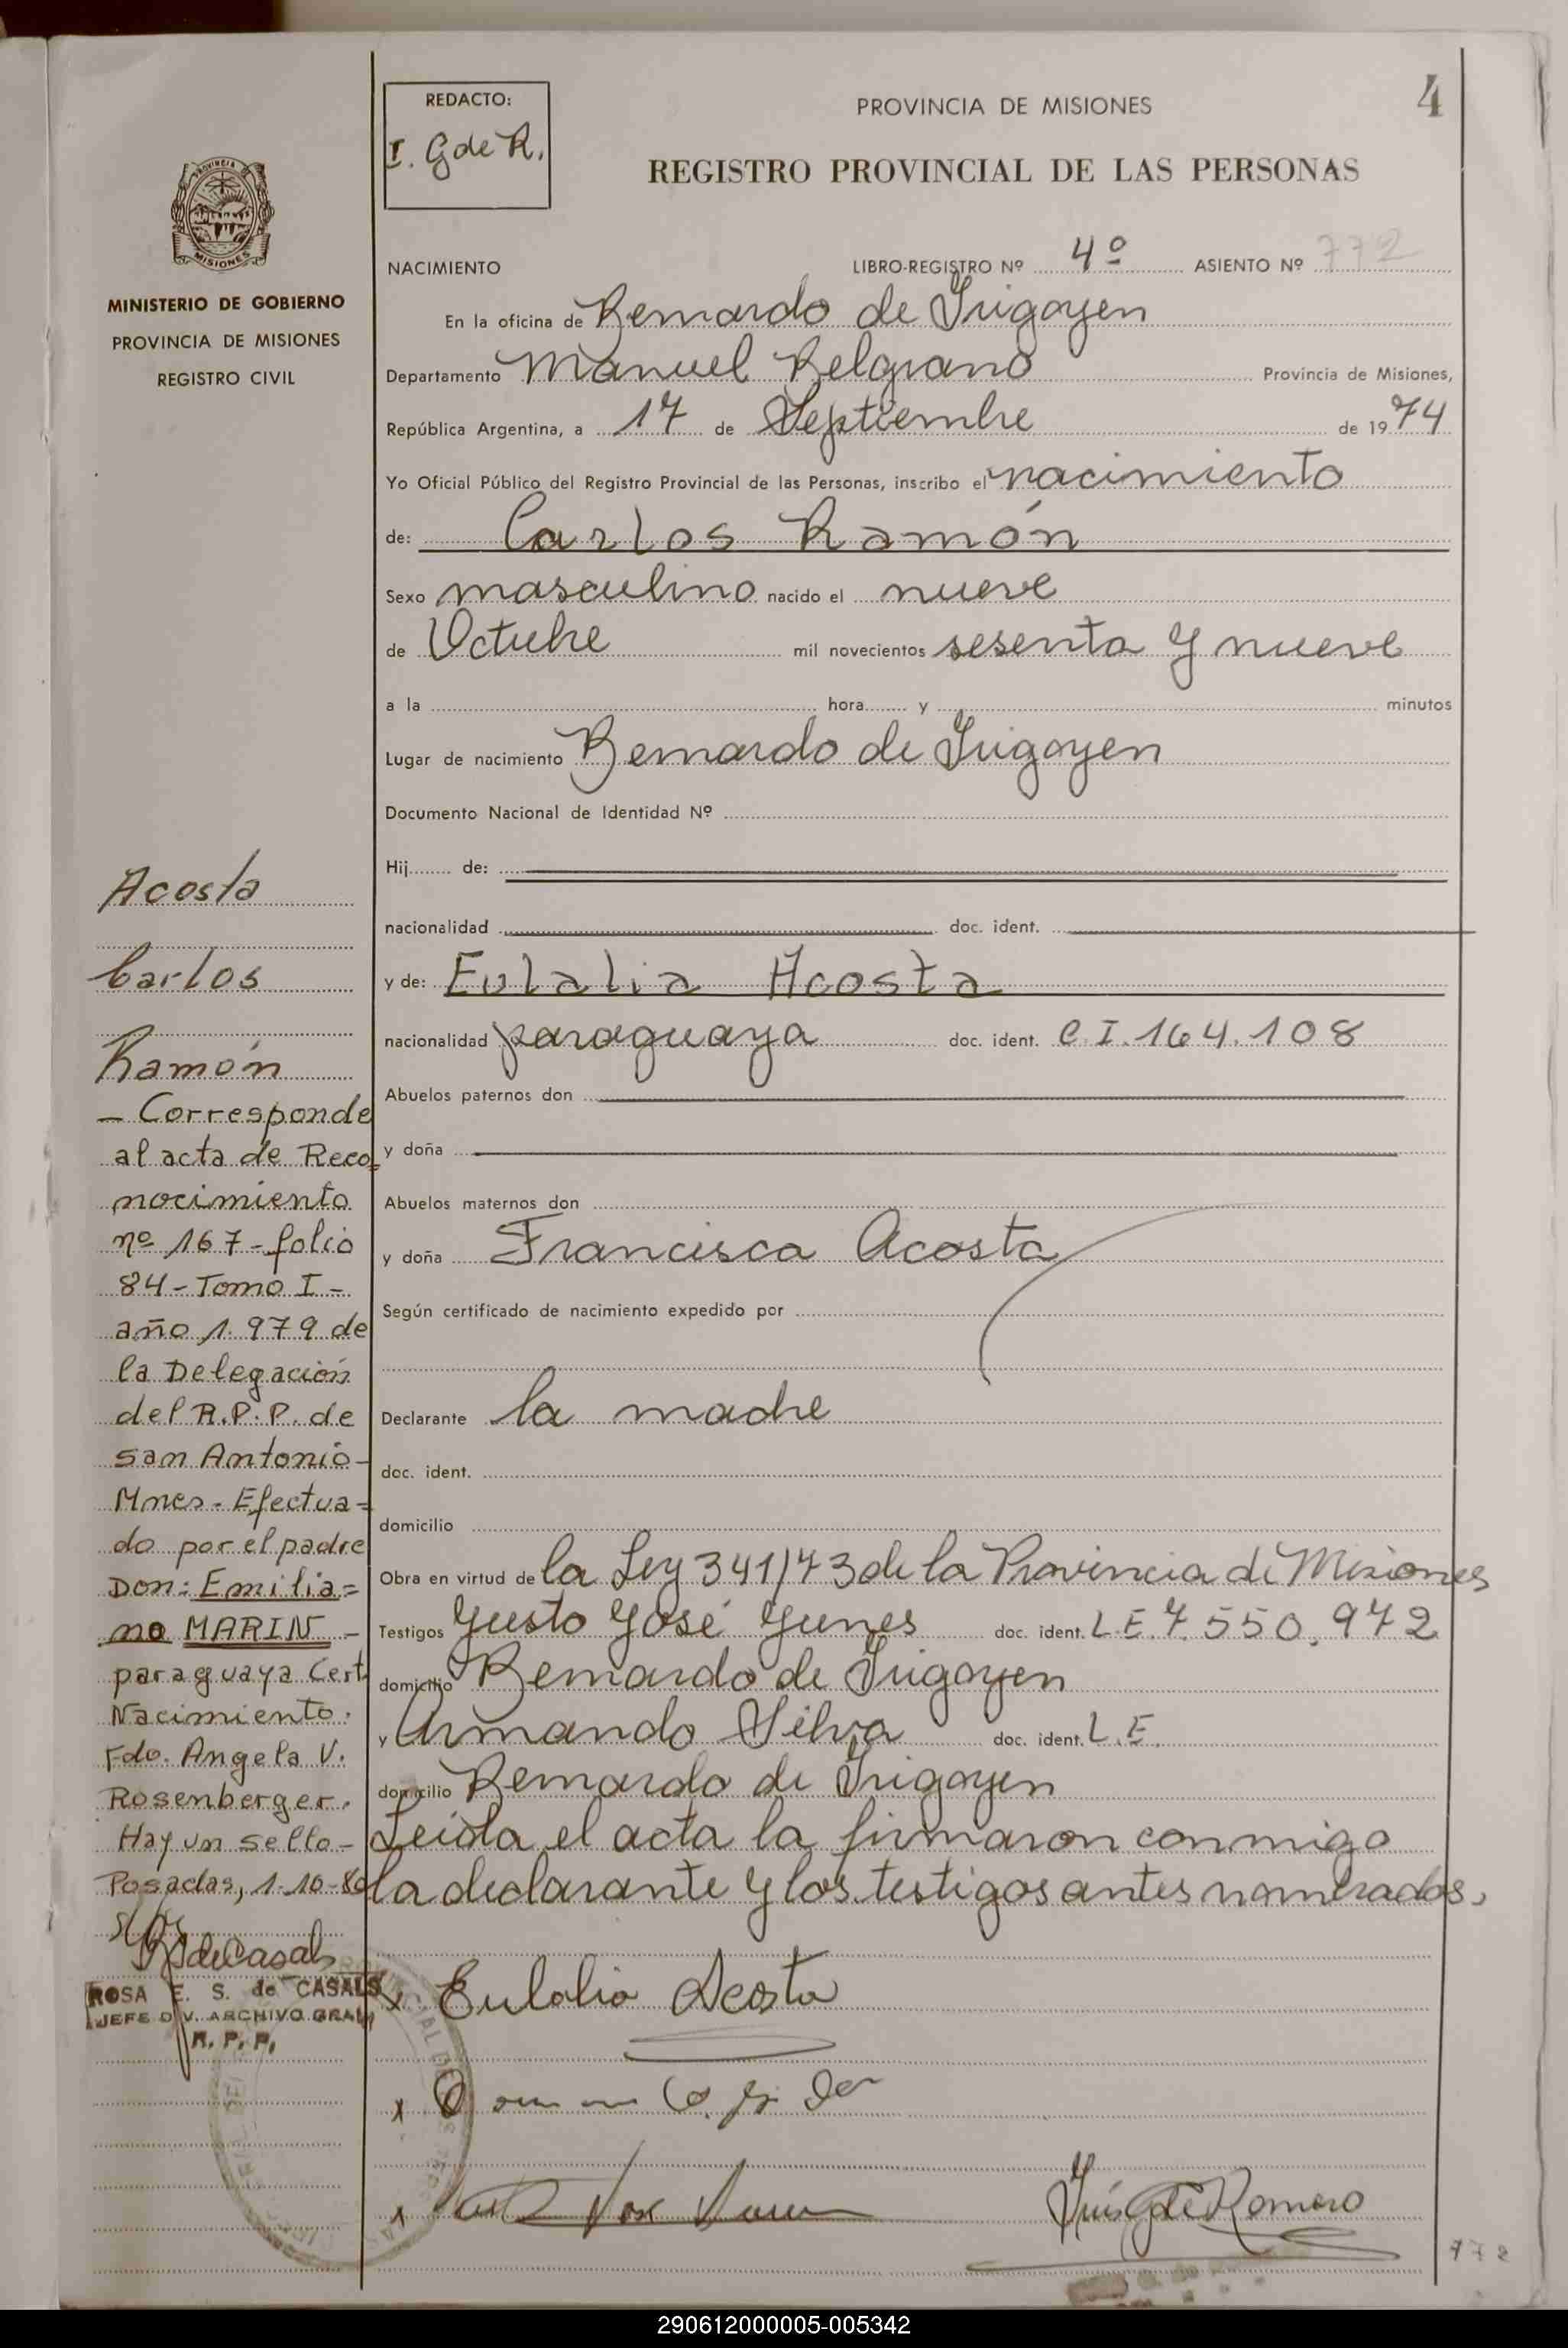 4
REDACTO:
I. G de R.
PROVINCIA DE MISIONES
REGISTRO PROVINCIAL DE LAS PERSONAS
PROVINCIA
MISIONES
MINISTERIO DE GOBIERNO
PROVINCIA DE MISIONES
REGISTRO CIVIL
NACIMIENTO LIBRO-REGISTRO Nº 4º ASIENTO Nº 772
En la oficina de Bernardo de Irigoyen
Departamento Manuel Belgrano Provincia de Misiones,
República Argentina, a 17 de Septiembre de 1974
Yo Oficial Público del Registro Provincial de las Personas, inscribo el nacimiento
de: Carlos Ramón
Sexo masculino nacido el nueve
de Octubre mil novecientos sesenta y nueve
a la hora y minutos
Lugar de nacimiento Bernardo de Irigoyen
Documento Nacional de Identidad Nº
Hij de:
nacionalidad doc. ident.
y de: Eulalia Acosta
nacionalidad paraguaya doc. ident. C.I. 164.108
Abuelos paternos don
y doña
Abuelos maternos don
y doña Francisca Acosta
Según certificado de nacimiento expedido por
Declarante la madre
doc. ident.
domicilio
Obra en virtud de la Ley 341/73 de la Provincia de Misiones
Testigos Yusto Yosé Yunes doc. ident. L.E. 7.550.972
domicilio Bernardo de Irigoyen
y Armando Silva doc. ident. L.E.
domicilio Bernardo de Irigoyen
Leída el acta la firmaron conmigo
la declarante y los testigos antes nombrados.
x Eulalia Acosta
x
x
Inés G de Romero
772
Acosta
Carlos
Ramón
- Corresponde
al acta de Reco-
nocimiento
nº 167 - folio
84 - Tomo I -
año 1.979 de
la Delegación
del R.P.P. de
San Antonio -
Mnes - Efectua-
do por el padre
Don: Emilia-
no MARIN -
paraguaya Cert
Nacimiento.
Fdo. Angela V.
Rosenberger.
Hay un sello -
Posadas, 1-10-80
RSdeCasals
ROSA E. S. de CASALS
JEFE DIV. ARCHIVO GRAL
R. P. P.
290612000005-005342